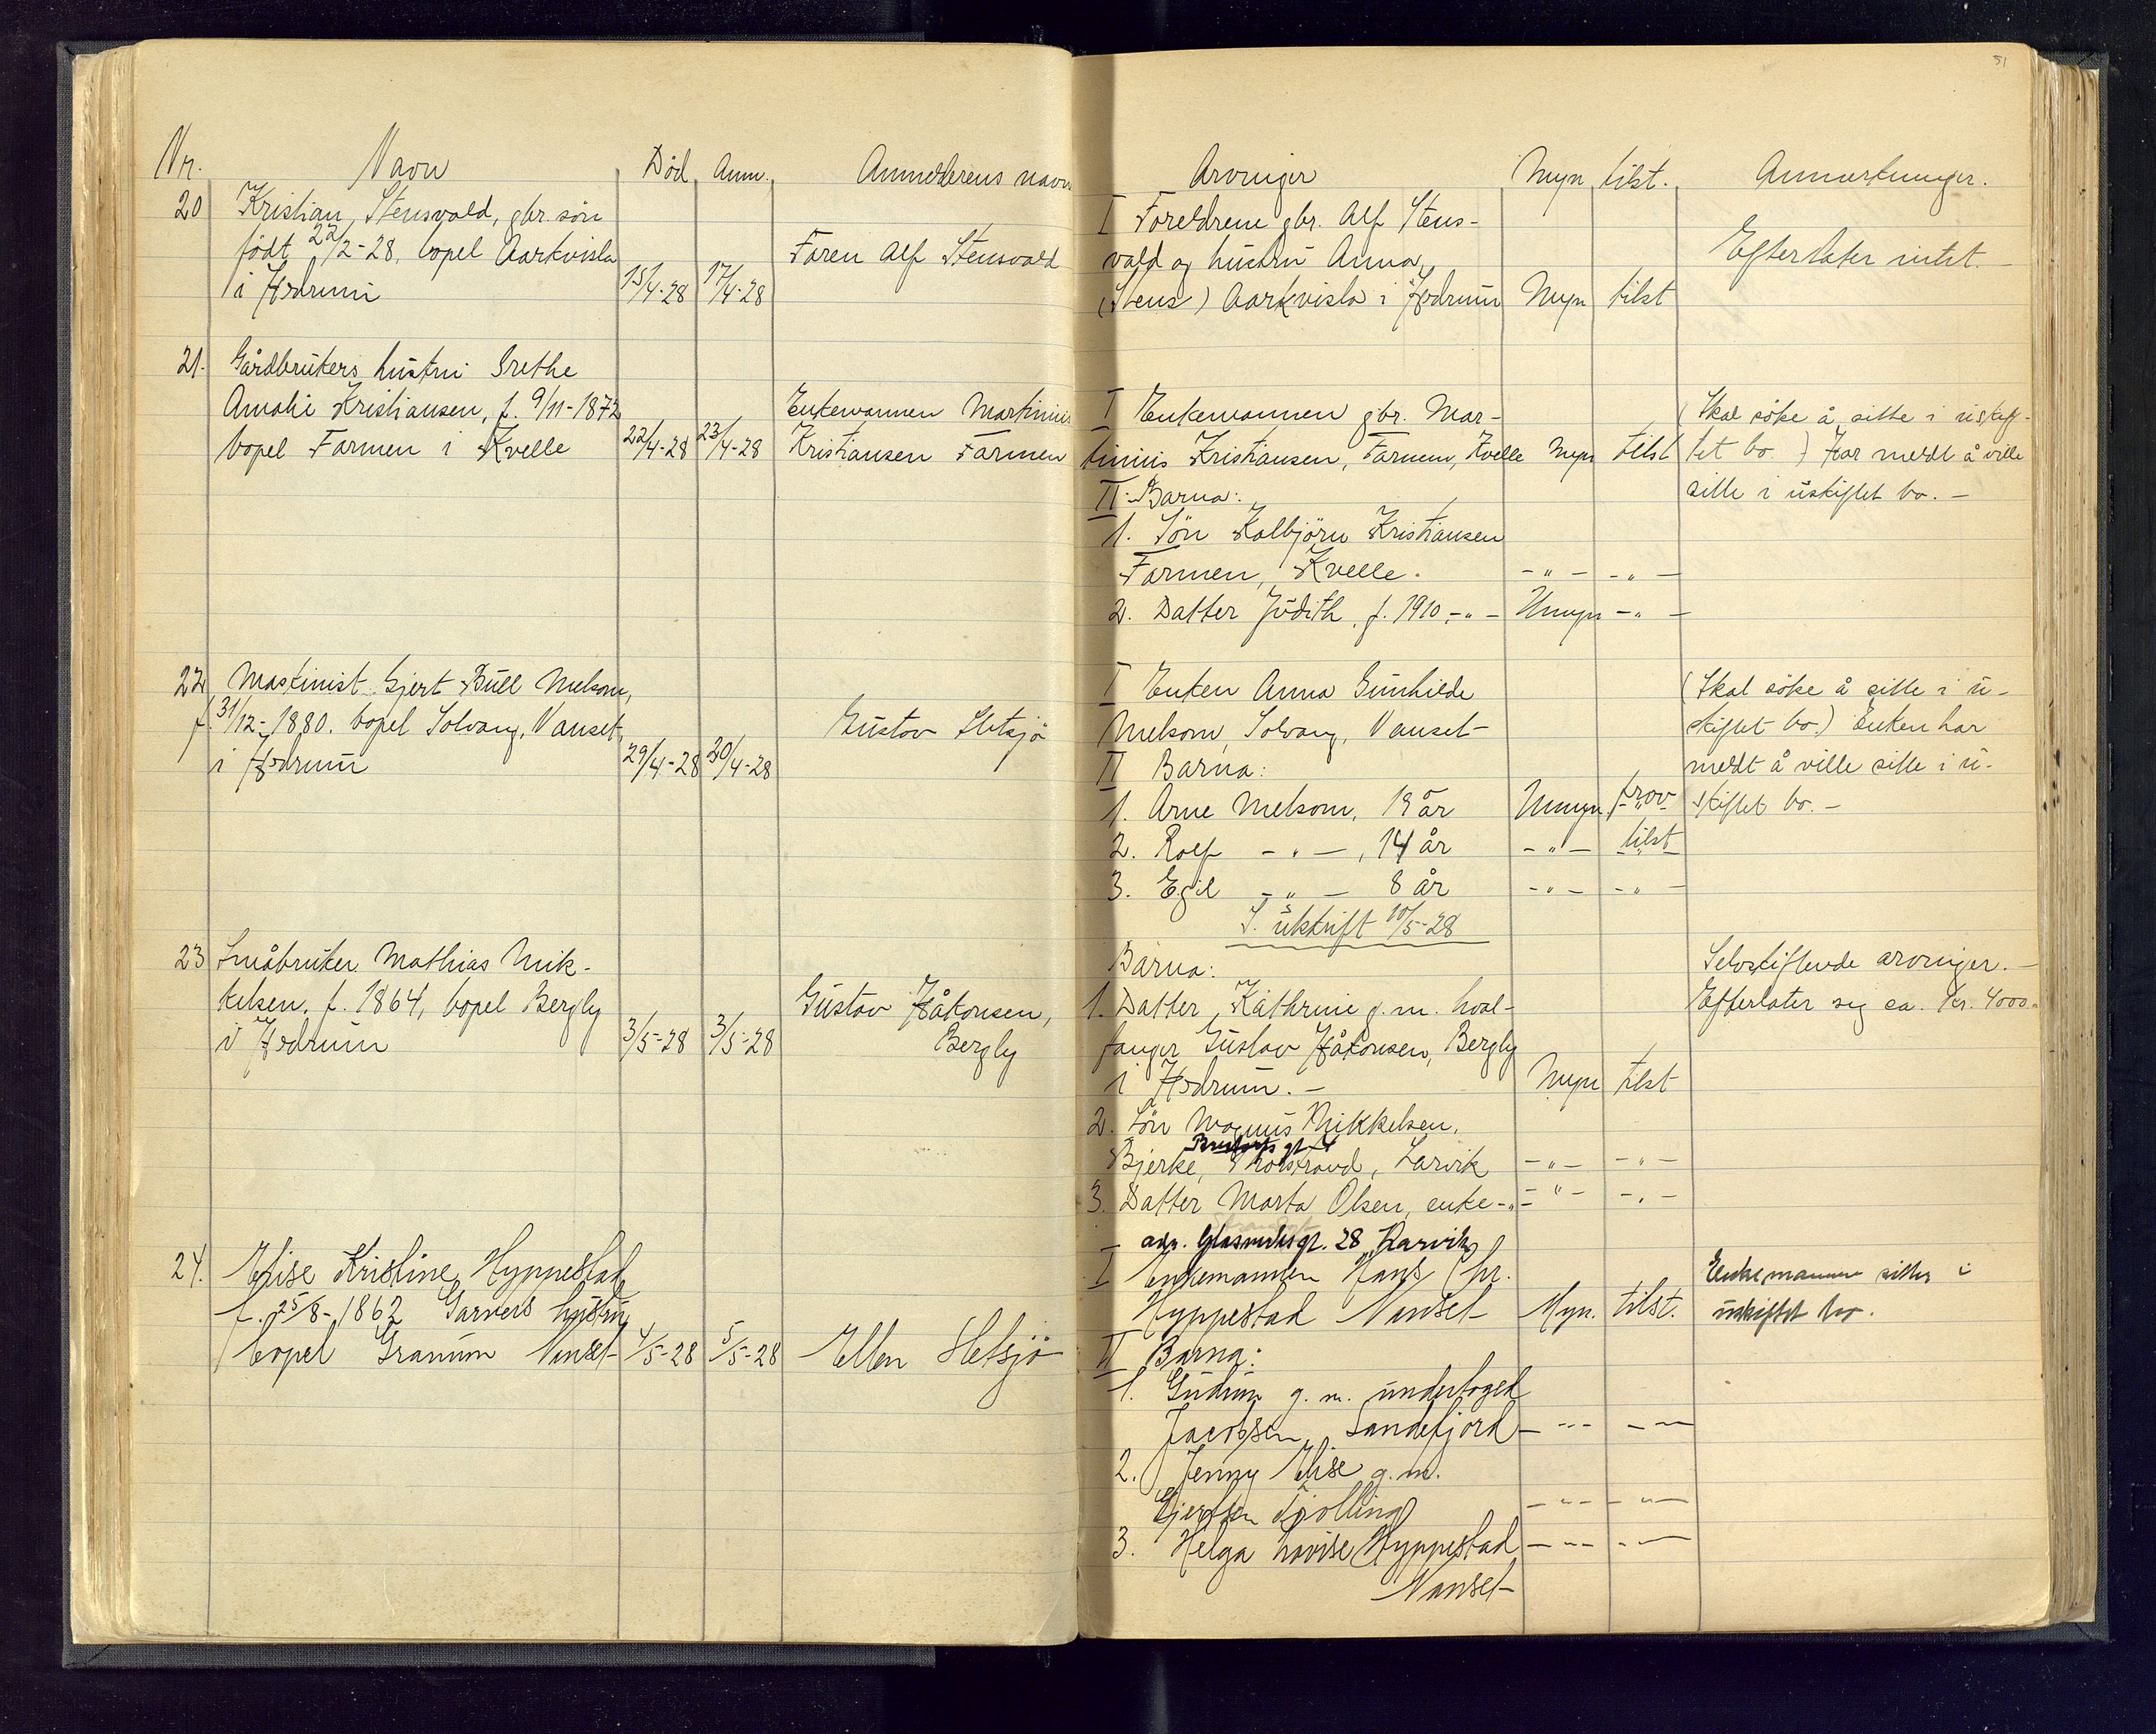 51
Nr. Navn Död Anm. Anmelderens navn
20 Kristian Stensvold, gbr. sön
födt 22/2-28, bopel Aarkvisla
i Hedrum 15/4-28 17/4-28
Faren Alf Stensvold
21. Gårdbrukers hustru Grethe
Amalie Kristiansen, f. 9/11-1872
bopel Farmen i Kvelle 22/4-28 23/4-28
Enkemannen Martinius
Kristiansen Farmen
22 Maskinist Gjert Bull Melsom,
f. 31/12-1880. bopel Solvang, Nanset
i Hedrum 29/4-28 30/4-28
Gustav Sletsjö
23 Småbruker Mathias Mik-
kelsen, f. 1864, bopel Bergly
i Hedrum 3/5-28 3/5-28
Gustav Håkonsen,
Bergly
24. Elise Kristine Hyppestad
f. 25/8-1862 Garvers hustru
bopel Granum Nanset 4/5-28 5/5-28 Ellen Sletsjö
Arvinger Myn. tilst. Anmerkninger.
I Foreldrene gbr. Alf Stens-
vold og hustru Anna
(Stens) Aarkvisla i Hedrum Myn tilst
Efterlater intet. -
I Enkemannen gbr. Mar-
tinius Kristiansen, Farmen, Kvelle Myn tilst
(Skal söke å sitte i uskif-
tet bo.) Har meldt å ville
sitte i uskiftet bo. -
II. Barna:
1. Sön Kolbjörn Kristiansen
Farmen, Kvelle. - " - - " -
2. Datter Judith, f. 1910, - " - Umyn - " -
I Enken Anna Gunhilde
Melsom, Solvang, Nanset
(Skal söke å sitte i u-
skiftet bo.) Enken har
meldt å ville sitte i u-
skiftet bo. -
II Barna:
1. Arne Melsom, 19 år Umyn frav
2. Rolf - " -, 14 år - " - tilst
3. Egil - " - 8 år - " - - " -
S. utskrift 10/5-28
Barna:
1. Datter Kathrine g. m. hval-
fanger Gustav Håkonsen, Bergly
i Hedrum. - Myn tilst
Selvskiftende arvinger. -
Efterlater sig ca. kr. 4000.-
2. Sön Magnus Mikkelsen,
gt. 4
Bjerke, Larvik - " - - " -
3. Datter Marta Olsen, enke - " - - " -
adr. gt. 28 Larvik
I Enkemannen Hans Chr.
Hyppestad Nanset Myn. tilst.
Enkemannen sitter i
uskiftet bo.
II Barna:
1. Gudrun g. m. undertoged
Jacobsen Sandefjord - " - - " -
2. Jenny Elise g. m.
Gjertsen Tjölling - " - - " -
3. Helga Lovise Hyppestad - " - - " -
Nanset